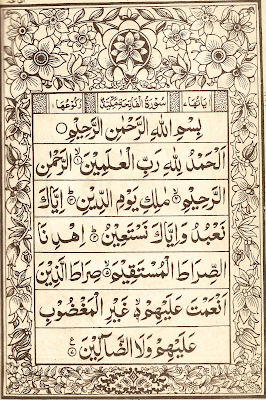 سُوْرَةُ الْفَاتِحَةِ مَكِّيَّةٌ
بِسْمِ اللهِ الرَّحْمٰنِ الرَّحِيْمِ
اَلْحَمْدُ لِلّٰهِ رَبِّ الْعٰلَمِيْنَ الرَّحْمٰنِ
الرَّحِيْمِ مٰلِكِ يَوْمِ الدِّيْنِ اِيَّاكَ
نَعْبُدُ وَاِيَّاكَ نَسْتَعِيْنُ اِهْدِنَا
الصِّرَاطَ الْمُسْتَقِيْمَ صِرَاطَ الَّذِيْنَ
اَنْعَمْتَ عَلَيْهِمْ غَيْرِ الْمَغْضُوْبِ
عَلَيْهِمْ وَلَا الضَّآلِّيْنَ